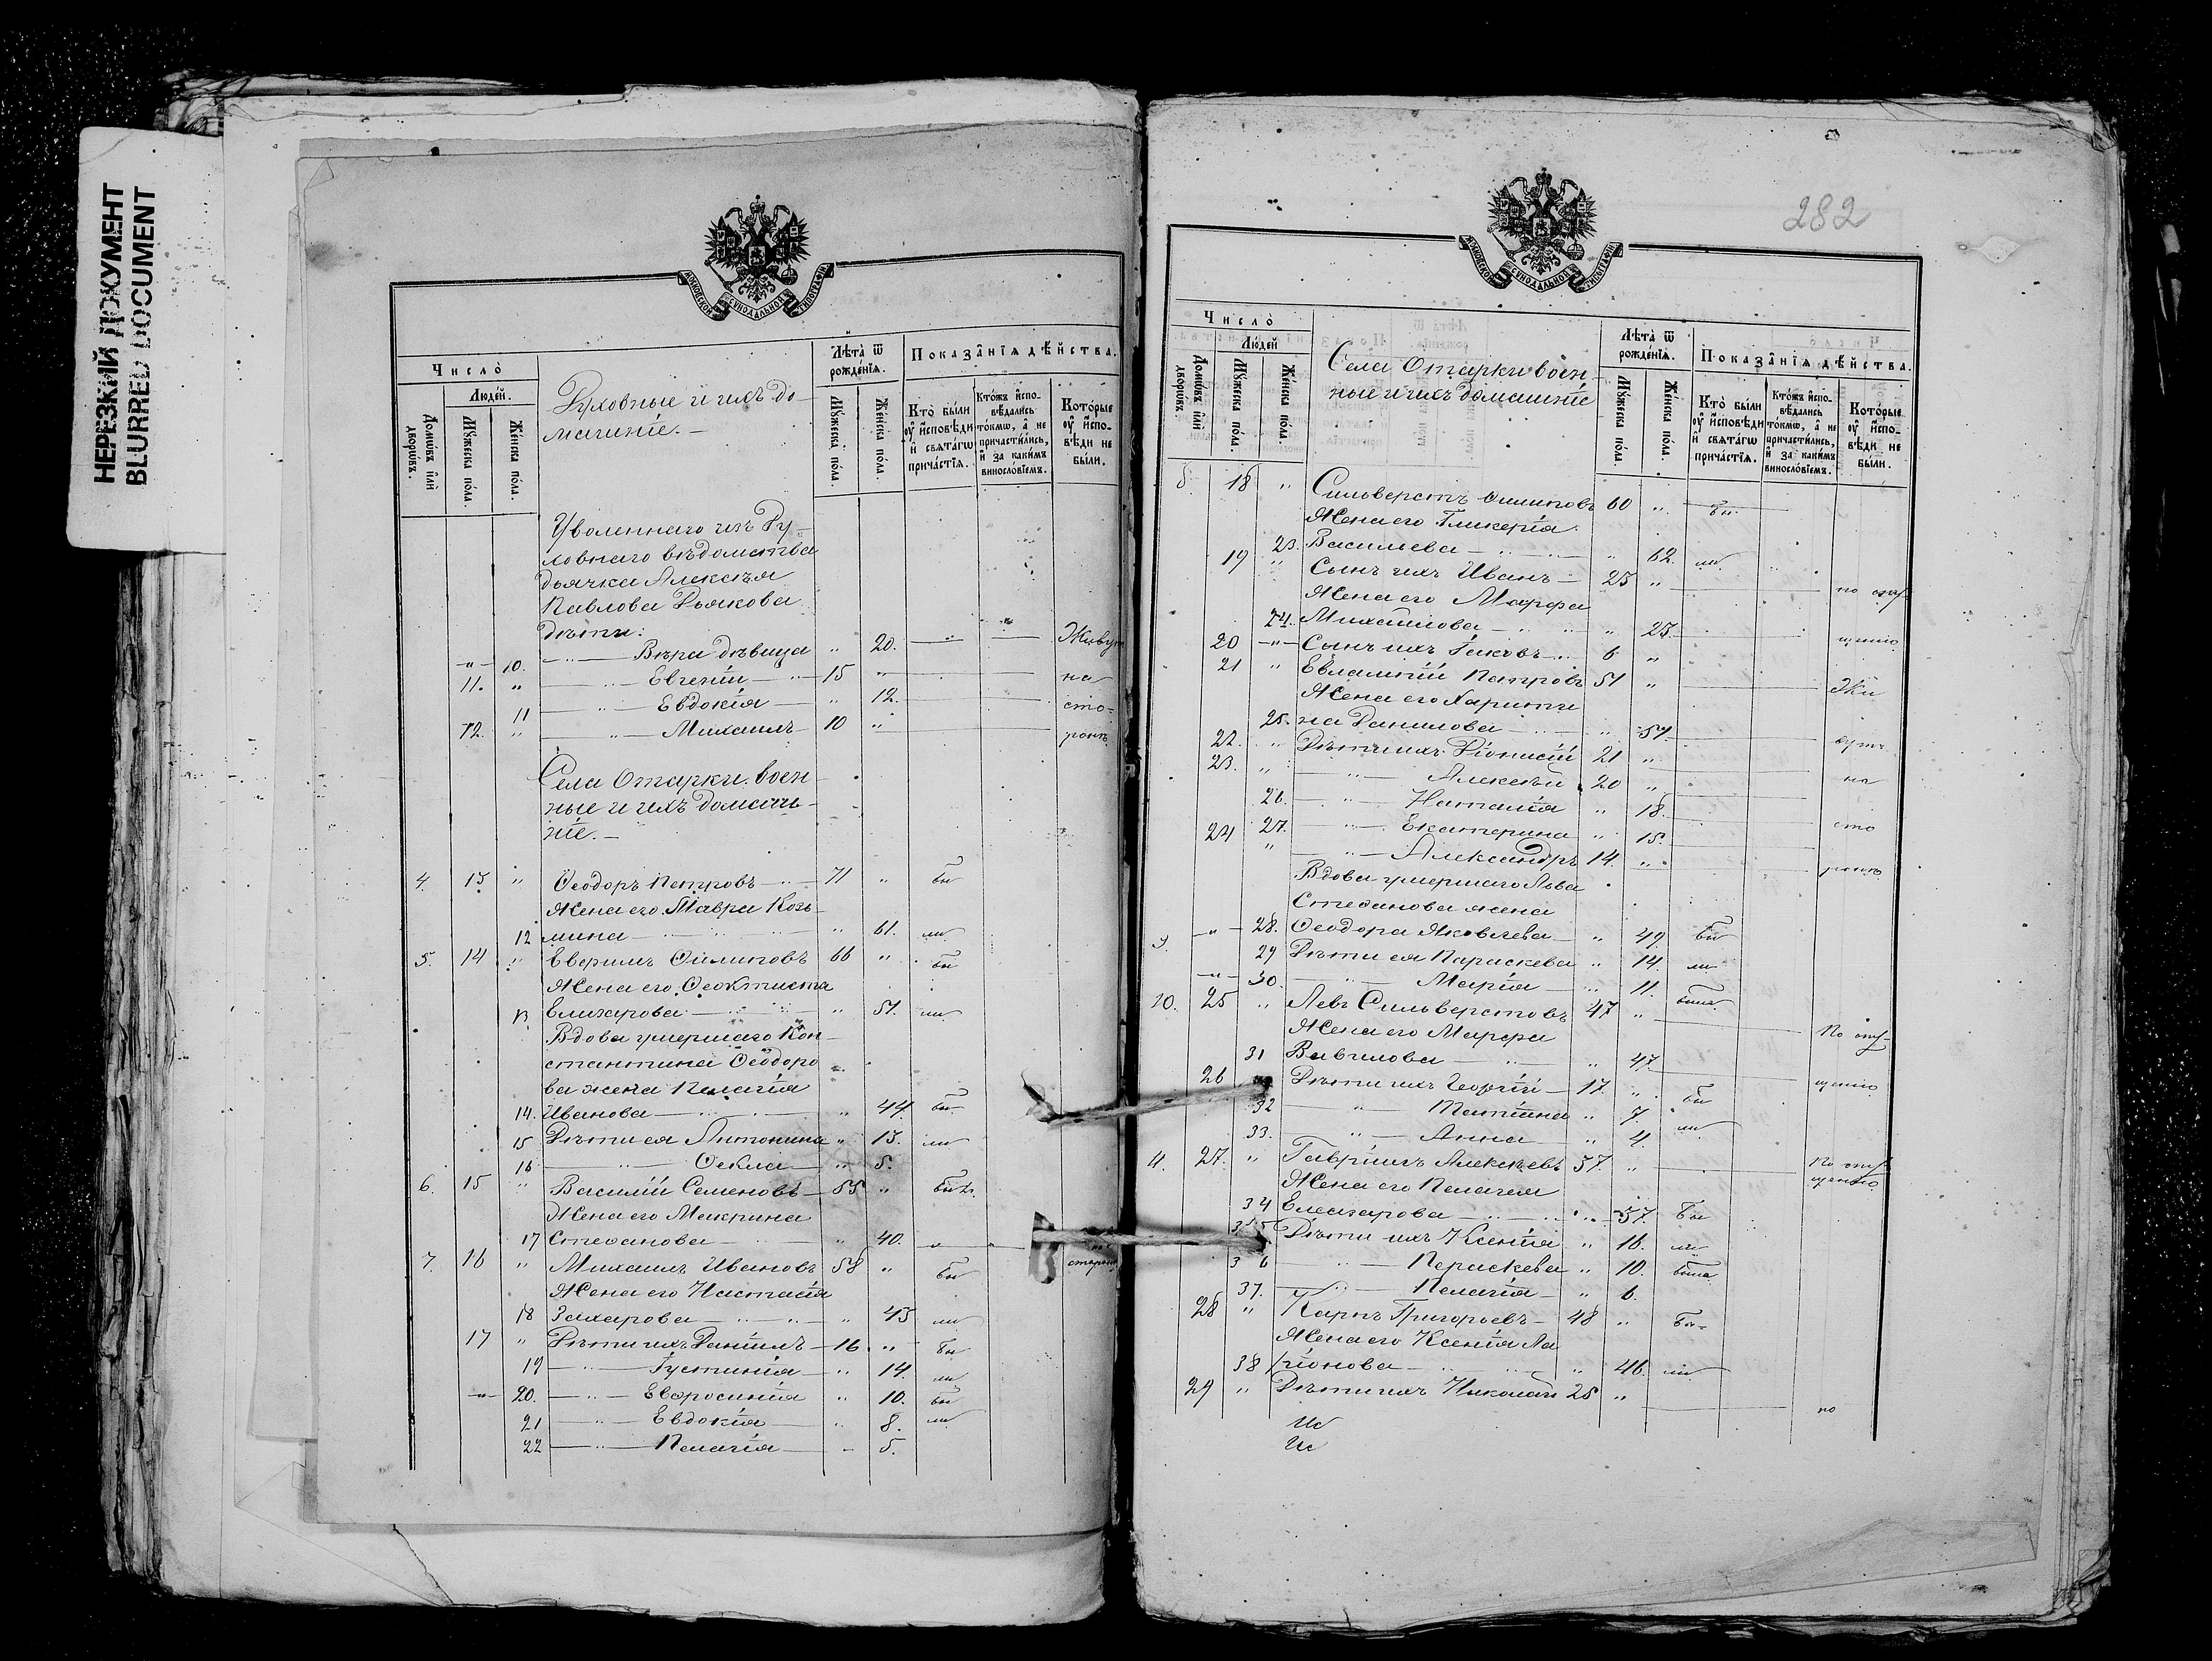 НЕРЕЗКИЙ ДОКУМЕНТ
BLURRED DOCUMENT
МОСКОВСКОЙ СѴНОДАЛЬНОЙ ТИПОГРАФІИ
Число̀
Люде́й.
Домѡ́въ и҆лѝ дворѡ́въ.
Мꙋ́жеска по́ла.
Же́нска по́ла.
Духовные и ихъ до-
машніе. —
Лѣ́та ѿ рожде́нїѧ.
Мꙋ́жеска по́ла.
Же́нска по́ла.
Показа̑нїѧ дѣ́йства.
Кто̀ бы́ли ᲂу҆ и҆сповѣ́ди и҆ свѧта́гѡ прича́стїѧ.
Кто́жъ и҆сповѣ́дались то́кмѡ, а҆ не причасти́лись, и҆ за каки́мъ винослоѐвїемъ.
Кото́рые ᲂу҆ и҆сповѣ́ди не бы́ли.
Уволеннаго изъ Ду-
ховнаго вѣдомства
дьячка Алексѣя
Павлова Дьякова
дѣти:
-"- 10. -"- Вѣра дѣвица " 20. Живут
11. " -"- Евгеній 15 " на
11 -"- Евдокія " 12. сто-
12. " -"- Михаилъ 10 " ронѣ.
Села Отарки воен-
ные и ихъ домаш-
ніе. —
4. 13 " Ѳеодоръ Петровъ 71 " бы
Жена его Мавра Козь-
12 мина " 61. ли
5. 14 " Ефримъ Филиповъ 66 " бы
Жена его Ѳеоктиста
13 Елизарова " 51. ли
Вдова умершаго Кон-
стантина Ѳеодоро
ва жена Пелагія
14. Иванова " 44 бы-
15 Дѣти ея Антонина " 13. ли
16 -"- Ѳекла " 5.
6. 15 " Василій Семеновъ 55 " былъ.
Жена его Макрина
17 Стефанова " 40. сторон
7. 16 " Михаилъ Ивановъ 58 " бы
Жена его Настасія
18 Захарова " 43 ли
17 " Дѣти ихъ Даніилъ 16. " бы
19 -"- Іустинія " 14. ли
-"- 20. -"- Евфросинія " 10. бы
21 -"- Евдокія " 8. ли
22 -"- Пелагія - 5.
282
МОСКОВСКОЙ СѴНОДАЛЬНОЙ ТИПОГРАФІИ
Число̀
Люде́й
Домѡ́въ и҆лѝ дворѡ́въ.
Мꙋ́жеска по́ла.
Же́нска по́ла.
Села Отарки воен-
ные и ихъ домашніе
Лѣ́та ѿ рожде́нїѧ.
Мꙋ́жеска по́ла.
Же́нска по́ла.
Показа̑нїѧ дѣ́йства.
Кто̀ бы́ли ᲂу҆ и҆сповѣ́ди и҆ свѧта́гѡ прича́стїѧ.
Кто́жъ и҆сповѣ́дались то́кмѡ, а҆ не причасти́лись, и҆ за каки́мъ винослоѐвїемъ.
Кото́рые ᲂу҆ и҆сповѣ́ди не бы́ли.
8. 18 " Сильверстъ Филиповъ 60 " бы
Жена его Гликерія
23. Васильева " 62. ли
19 " Сынъ ихъ Иванъ 25 " по опу-
Жена его Марфа
24. Михайлова " 25. щенію
20 -"- Сынъ ихъ Іаковъ 6 "
21 " Евлампій Петровъ 51 " Жи
Жена его Харити
25. на Данилова " 51. вутъ
22. " Дѣти ихъ Діонисій 21 "
23. " -"- Алексѣй 20 " на
26. -"- Наталія " 18.
27. -"- Екатерина " 15. сто
24 " -"- Александръ 14. " ронѣ
Вдова умершаго Льва
Стефанова жена
9. -"- 28. Ѳеодора Яковлева " 49. бы
29 Дѣти ея Параскева " 14. ли
-"- 30. -"- Марія " 11. была
10. 25 " Левъ Сильверстовъ 47 " По опу-
Жена его Марфа
31 Вавилова " 47. щенію
26 Дѣти ихъ Георгій 17. " бы
32 " Татіана " 7. ли
33. " Анна " 4.
11. 27. " Гавріилъ Алексѣевъ 37. " По опу-
щенію
Жена его Пелагея
34 Елеазарова " 37. бы
35 Дѣти ихъ Ксенія " 16. ли
36 " Параскева " 10. была
37. -"- Пелагія " 6.
28 " Карпъ Григорьевъ 48 " бы-
Жена его Ксенія Ла
38 ріонова " 46. ли
29 " Дѣти ихъ Николай 25 " по